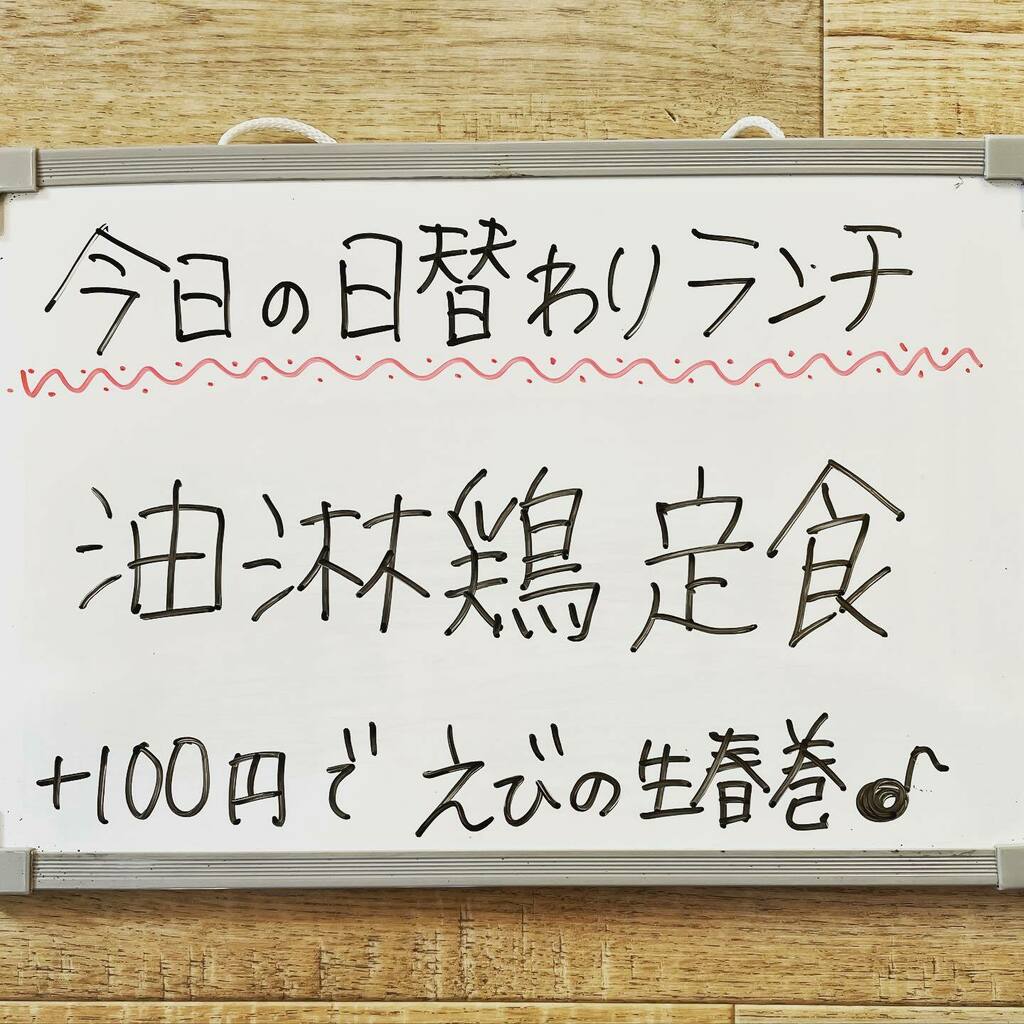 今日の日替わりランチ
油淋鶏 定食
+100円で えびの生春巻♪